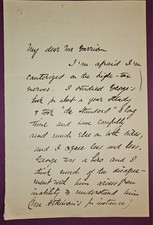 My dear Mr Garrison
I'm afraid I'm
canterized on the single-tax
nerves. I studied George's
book for about a year steady
& took "the Standard" a long
time and have caught &
read much else on both sides,
and I agree less and less.
George was a hero and I
think much of the disagree-
ment with him arises from
inability to understand him
(see Atkinson's for instance)